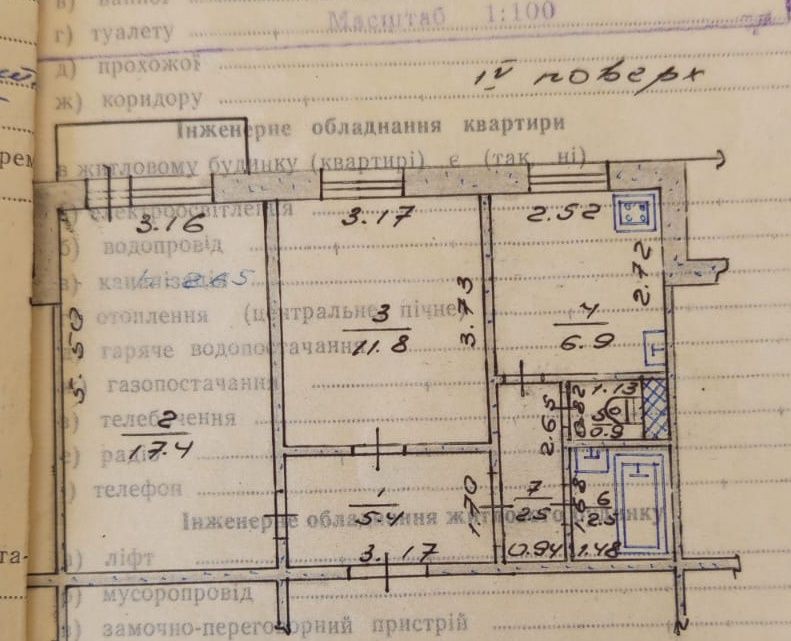 в) ванної
г) туалету
Масштаб 1:100
д) прохожої
ж) коридору
IV поверх
Інженерне обладнання квартири
в житловому будинку (квартирі) є (так, ні)
електроосвітлення
3.16 3.17 2.52
б) водопровід
2.72
в) каналізація
h=2.65
отоплення (центральне, пічне)
3 4
11.8 6.9
3.73
гаряче водопостачання
5.50
газопостачання
1.13
телебачення
2 5
17.4 0.9
0.82
2.65
е) радіо
телефон
1 7 6
5.4 2.5 2.5
1.70
1.68
Інженерне обладнання житлового будинку
3.17 0.94 1.48
а) ліфт
мусоропровід
замочно-переговорний пристрій